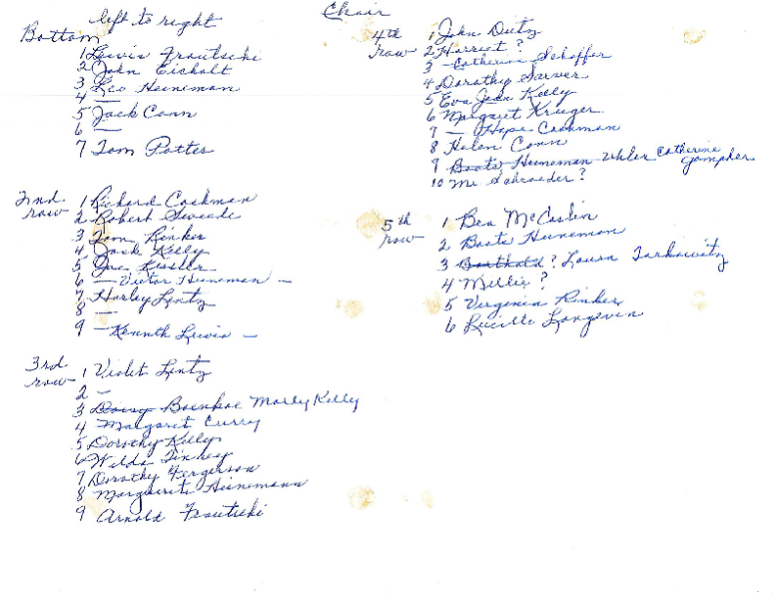 left to right
Bottom
1 Lewis Frautschi
2 John Eicholt
3 Leo Heineman
4 —
5 Jack Conn
6 —
7 Tom Potter
2nd row 1 Richard Cashman
2 Robert Swade
3 Tom Rinker
4 Jack Kelly
5 Joe Kissler
6 — Victor Heineman —
7 Harley Lentz
8 —
9 — Kenneth Lewis —
3rd row 1 Violet Lentz
2 —
3 Daisy Boenkoe Marly Kelly
4 Margaret Curry
5 Dorothy Kelly
6 Wilda Tinney
7 Dorothy Fergerson
8 Marguerite Heinemann
9 Arnold Frautschi
Choir
4th row 1 John Deitz
2 Harriet ?
3 — Catherine Schaffer
4 Dorothy Sarver
5 Eva Jean Kelly
6 Margaret Kruger
7 — Hope Cashman
8 Helen Conn
9 Boots Heineman Catherine Gampher
10 Mr Schroeder ?
5th row 1 Bea McCaslin
2 Boots Heineman
3 Barthold ? Louisa Tarkowitz
4 Millie ?
5 Virginia Rinker
6 Lucille Longeven